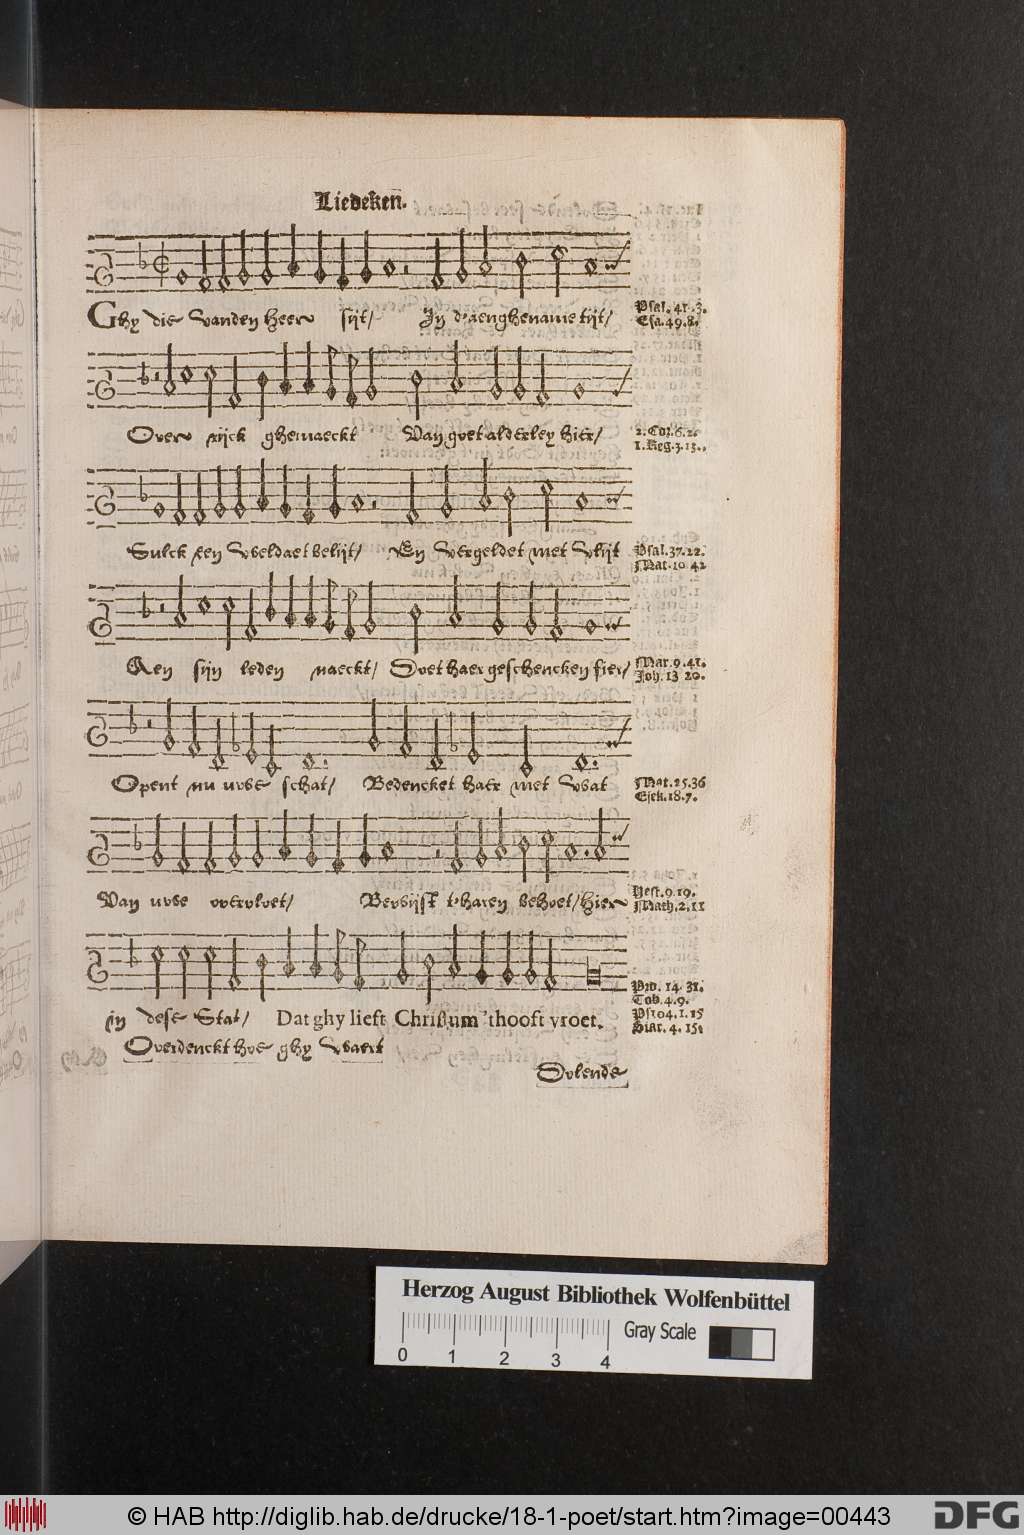 Liedeken.
Ghy die vanden Heer sijt/ In d'aenghename tijt/
Psal. 41. 3.
Esa. 49. 8.
Over rijck ghemaeckt Van goet alderley hier/
2. Cor. 6. 2.
1. Reg. 3. 13.
Sulck een weldaet belijt/ En vergeldet met vlijt
Psal. 37. 22.
Mat. 10 42
Aen sijn leden naeckt/ Doet haer geschencken fier/
Mar. 9. 41.
Joh. 13 20.
Opent nu uwe schat/ Bedencket haer met wat
Mat. 25. 36
Ezek. 18. 7.
Van uwe overvloet/ Bewijst t'haren behoet/ hier
Nest. 9. 19.
Math. 2. 11
in dese Stat/ Dat ghy lieft Christum 'thooft vroet.
Pro. 14. 31.
Tob. 4. 9.
Ps104. 1. 15
Overdenckt hoe ghy waert
Dolende
Herzog August Bibliothek Wolfenbüttel
Gray Scale
0 1 2 3 4
© HAB http://diglib.hab.de/drucke/18-1-poet/start.htm?image=00443
DFG